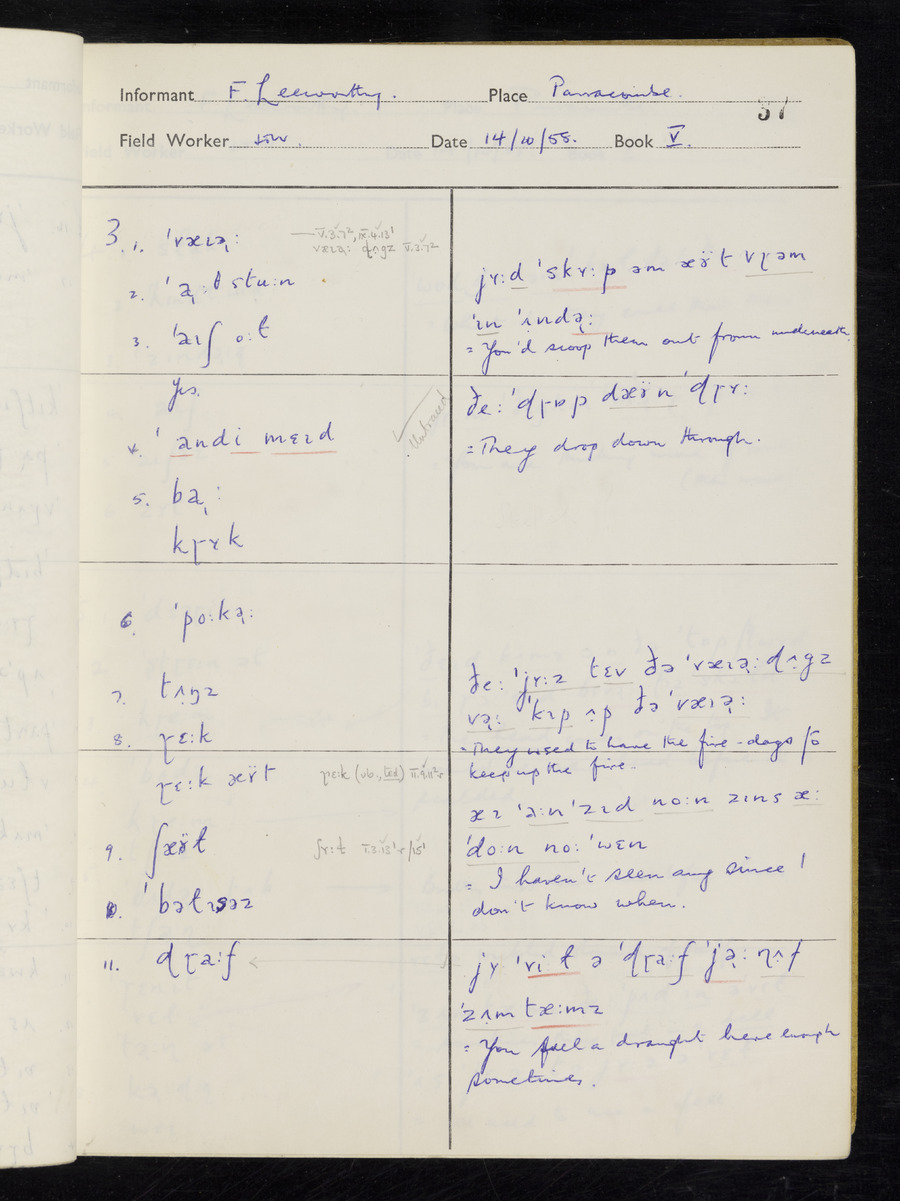 Informant F Leeworthy. Place Parracombe.
37
Field Worker Date 14/10/55. Book V.
3.
1. ˈvæɪə̣ː — V.3.7², IX.4.13¹
væɪə̣ː dʌgz V.3.7²
2. ˈạːθ stuːn
3. ˈaɪʃ oːt
Yes.
4. ˈandi mɛɪd
Untraced
5. bạː
kɽʏk
6. ˈpoːkə̣ː
7. tʌŋz
8. ɽɛːk
ɽɛːk æÿt ɽɛːk (vb., ted) II.9.11
9. ʃæÿt ʃʏːt
10. ˈbətɪsəz
11. dɽaːf
jʏːd ˈskʏːp əm æÿt vɽəm
ˈɪn ˈʌndə̣ː
= You'd scoop them out from underneath.
ðeː ˈdɽɒp dæÿn ˈdɽʏː
= They drop down through.
ðeː ˈjʏːz tɛv ðə ˈvæɪə̣ː dʌgz
və̣ː ˈkɪp ʌp ðə ˈvæɪə̣ː
= They used to have the fire-dogs to
keep up the fire.
æɪ ˈaːn ˈzɪd noːn zɪns æː
ˈdoːn noː ˈwɛn
= I haven't seen any since I
don't know when.
jʏ ˈvi t ə ˈdɽaːf ˈjə̣ː ɳʌf
ˈzʌm tæːmz
= You feel a draught here enough
sometimes.